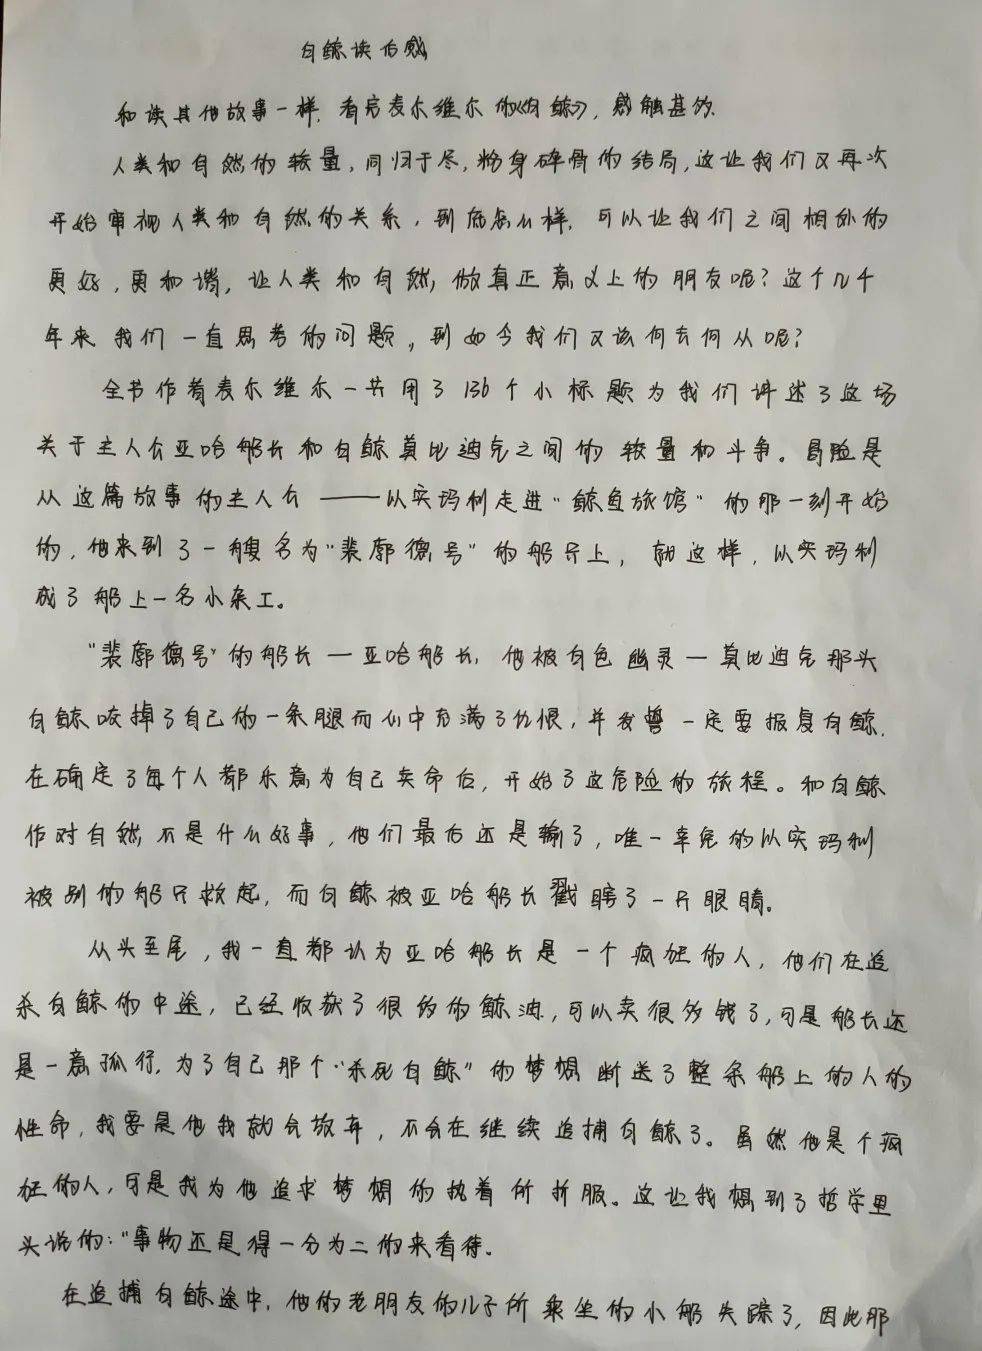 白鲸读后感
和读其他故事一样，看完麦尔维尔的《白鲸》，感触甚多.
人类和自然的较量，同归于尽，粉身碎骨的结局，这让我们又再次
开始审视人类和自然的关系，到底怎么样，可以让我们之间相处的
更好，更和谐，让人类和自然，做真正意义上的朋友呢？这个几千
年来我们一直思考的问题，到如今我们又该何去何从呢？
全书作者麦尔维尔一共用了136个小标题为我们讲述了这场
关于主人公亚哈船长和白鲸莫比迪克之间的较量和斗争。冒险是
从这篇故事的主人公——以实玛利走进“鲸鱼旅馆”的那一刻开始
的，他来到了一艘名为“裴廓德号”的船只上，就这样，以实玛利
成了船上一名小杂工。
“裴廓德号”的船长一亚哈船长，他被白色幽灵一莫比迪克那头
白鲸咬掉了自己的一条腿而心中充满了仇恨，并发誓一定要报复白鲸，
在确定了每个人都乐意为自己卖命后，开始了这危险的旅程。和白鲸
作对自然不是什么好事，他们最后还是输了，唯一幸免的以实玛利
被别的船只救起，而白鲸被亚哈船长戳瞎了一只眼睛。
从头至尾，我一直都认为亚哈船长是一个疯狂的人，他们在追
杀白鲸的中途，已经收获了很多的鲸油，可以卖很多钱了，可是船长还
是一意孤行，为了自己那个“杀死白鲸”的梦想断送了整条船上的人的
性命，我要是他我就会放弃，不会在继续追捕白鲸了。虽然他是个疯
狂的人，可是我为他追求梦想的执着所折服。这让我想到了哲学里
头说的：“事物还是得一分为二的来看待。
在追捕白鲸途中，他的老朋友的儿子所乘坐的小船失踪了，因此那